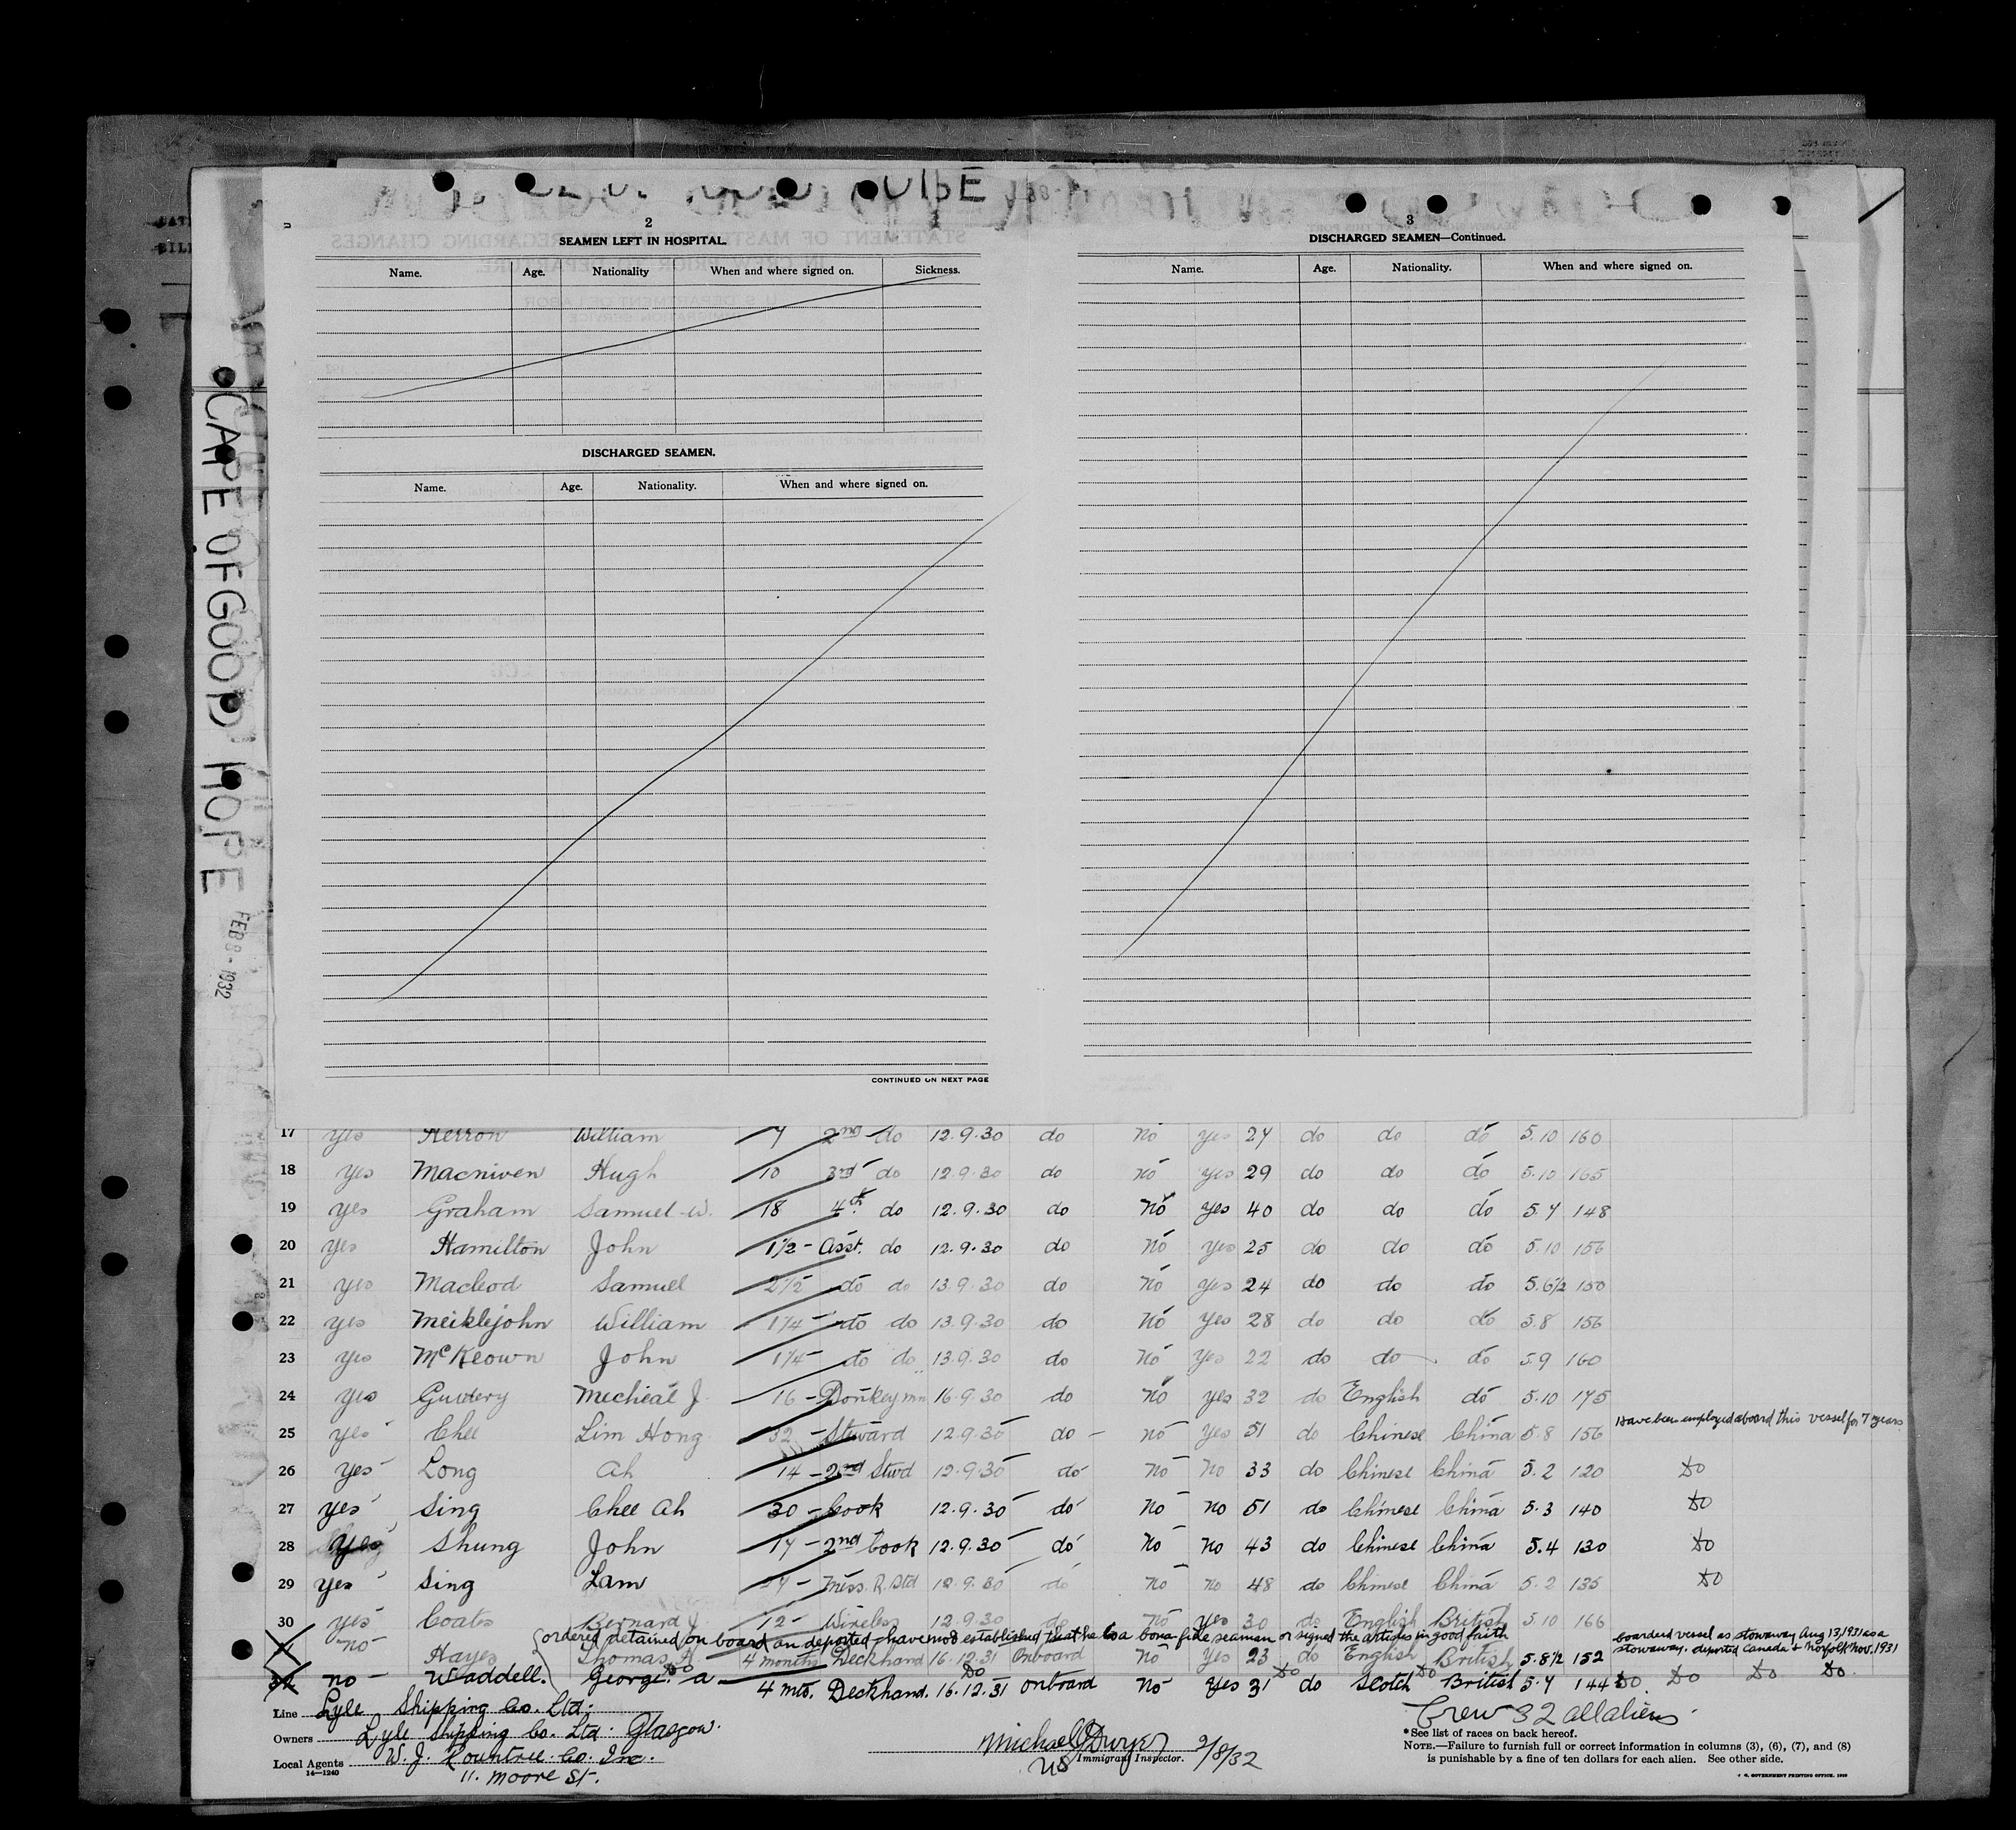 2
SEAMEN LEFT IN HOSPITAL.
Name. Age. Nationality When and where signed on. Sickness.
DISCHARGED SEAMEN.
Name. Age. Nationality. When and where signed on.
CONTINUED ON NEXT PAGE
3
DISCHARGED SEAMEN—Continued.
Name. Age. Nationality. When and where signed on.
CAPE OF GOOD HOPE
FEB 8 - 1932
17 yes Herron William 7 2nd do 12.9.30 do No yes 24 do do do 5.10 160
18 yes Macniven Hugh 10 3rd do 12.9.30 do No yes 29 do do do 5.10 165
19 yes Graham Samuel W. 18 4th do 12.9.30 do No yes 40 do do do 5.7 148
20 yes Hamilton John 1½ - Asst. do 12.9.30 do No yes 25 do do do 5.10 156
21 yes Macleod Samuel 2½ do do 13.9.30 do No yes 24 do do do 5.6½ 150
22 yes Meiklejohn William 1¼ - do do 13.9.30 do No yes 28 do do do 5.8 156
23 yes McKeown John 1¼ - do do 13.9.30 do No yes 22 do do do 5.9 160
24 yes Micheal J. 16 - Donkeymn 16.9.30 do No yes 32 do English do 5.10 175
Have been employed aboard this vessel for 7 years
25 yes Chee Lim Hong 32 - Steward 12.9.30 do - No yes 51 do Chinese China 5.8 156
26 yes Long Ah 14 - 2nd Stwd 12.9.30 do No No 33 do Chinese China 5.2 120 Do
27 yes Sing Chee Ah 30 - Cook 12.9.30 do No No 51 do Chinese China 5.3 140 Do
28 yes Shung John 17 - 2nd Cook 12.9.30 do No No 43 do Chinese China 5.4 130 Do
29 yes Sing Lam 27 - Mess. R. Std 12.9.30 do No No 48 do Chinese China 5.2 135 Do
30 yes Coats Bernard J. 12 - Wireless 12.9.30 do No yes 30 do English British 5.10 166
ordered detained on board an deported - have not established that he is a bona fide seaman or signed the articles in good faith
boarded vessel as stowaway Aug 13, 1931 as a
stowaway. deported Canada & Norfolk Nov. 1931
no Hayes Thomas A. 4 months Deckhand 16.12.31 Onboard No Yes 23 do English British 5.8½ 152
Do Do Do Do
32 no - Waddell. George. A - 4 mts. Deckhand. 16.12.31 onboard No Yes 31 do Scotch British 5.7 144 Do. Do Do Do.
Line Lyle Shipping Co. Ltd.
Owners Lyle Shipping Co. Ltd. Glasgow.
Local Agents W. J. Rountree Co. Inc.
14—1240
11. Moore St.
Michael J Dwyer
US Immigrant Inspector. 2/8/32
Crew 32 all aliens
*See list of races on back hereof.
NOTE.—Failure to furnish full or correct information in columns (3), (6), (7), and (8)
is punishable by a fine of ten dollars for each alien. See other side.
GOVERNMENT PRINTING OFFICE